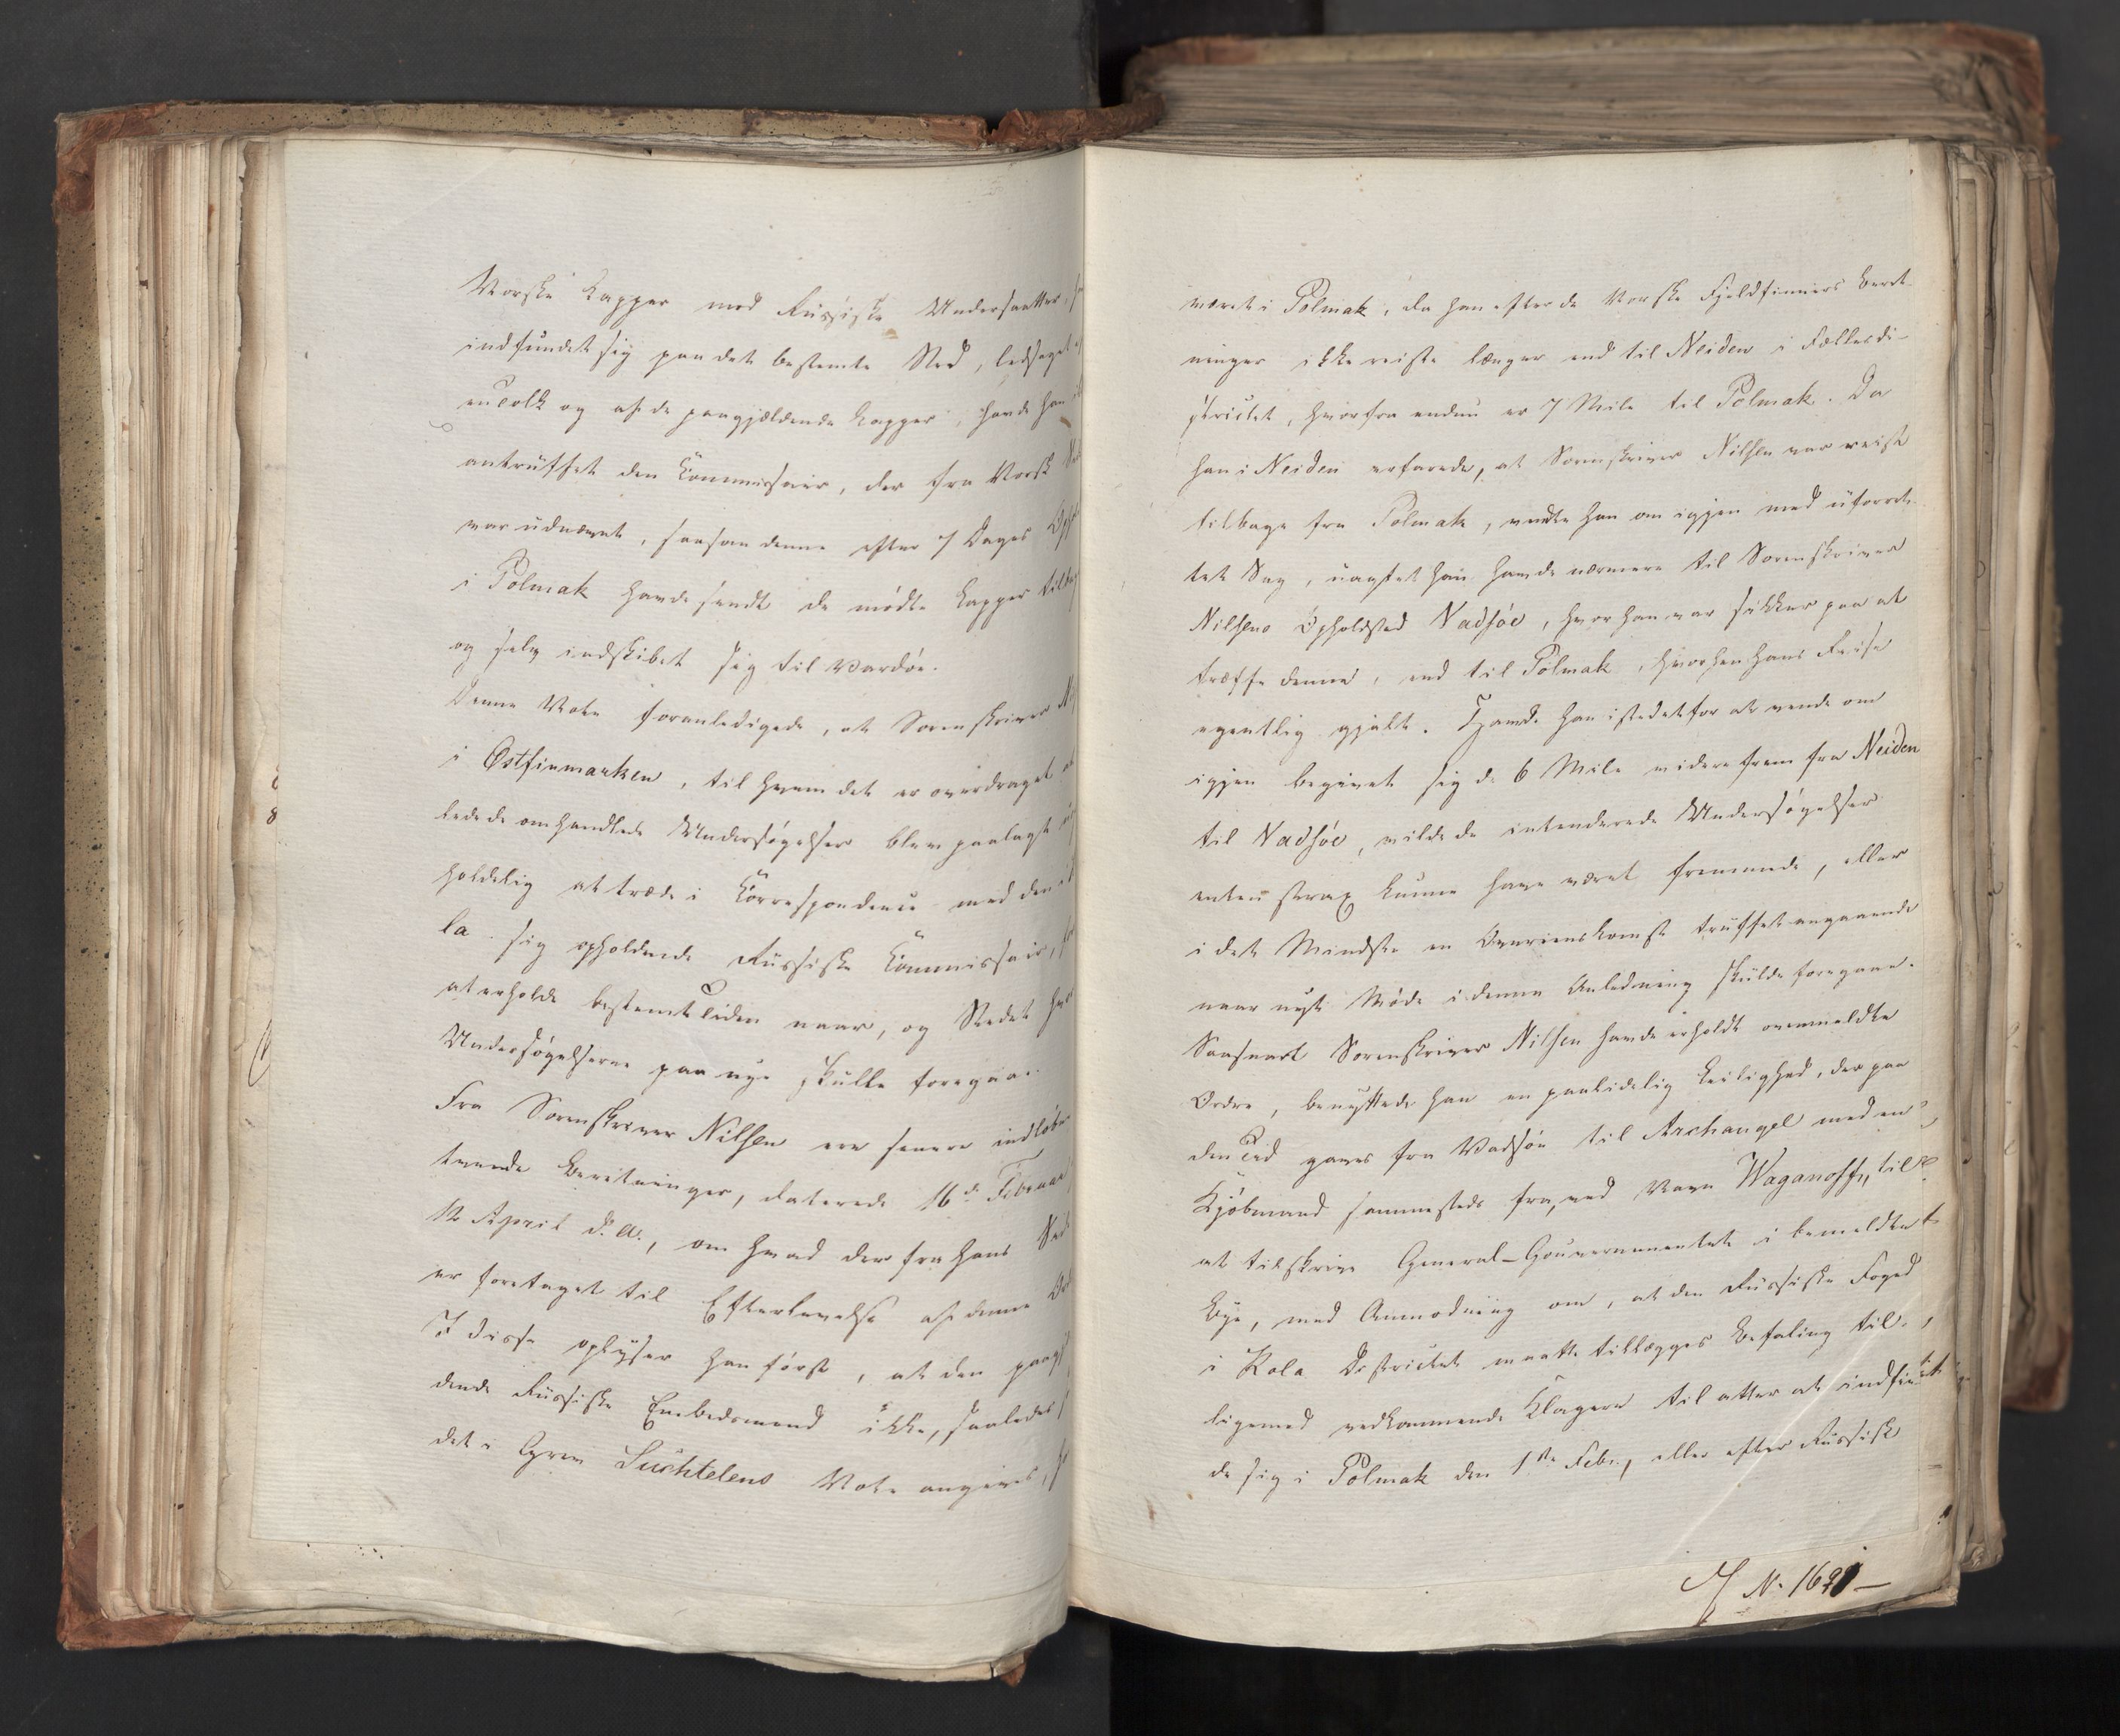 Norske Lapper med Russiske Undersaatter,
indfundet sig paa det bestemte Sted, ledsaget
en Tolk og af de paagjældende Lapper, havde han
antruffet den Commissair, der fra Norsk
var udnævnt, saasom denne efter 7 Dages
i Polmak havde sendt de mødte Lapper tilbag
og selv indskibet sig til Vardøe.
Denne Note foranledigede, at Sorenskriver
i Østfinmarken, til hvem det er overdraget at
lede de omhandlede Undersøgelser blev paalagt
holdelig at træde i Correspondence med den i
la sig opholdende Russiske Commissair, for
at erholde bestemt Tiden naar, og Stedet hvor
Undersøgelserne paa nye skulle foregaae.
Fra Sorenskriver Nilsen ere senere indløbne
tvende Beretninger, daterede 16de Februar
12 April d. A., om hvad der fra hans Side
er foretaget til Efterlevelse af denne
I disse oplyser han først, at den paagj
dende Russiske Embedsmand ikke, saaledes
det i Grev Suchtelens Note angives,
været i Polmak, da han efter de Norske Fjeldfinners Beret-
ninger ikke reiste længer end til Neiden i Fællesdi-
strictet, hvorfra endnu er 7 Mile til Polmak. Da
han i Neiden erfarede, at Sorenskriver Nilsen var reist
tilbage fra Polmak, vendte han om igjen med uforret-
tet Sag, uagtet han havde nærmere til Sorenskriver
Nilsens Opholdsted Vadsöe, hvor han var sikker paa at
træffe denne, end til Polmak, hvorhen hans Reise
egentlig gjalt. Havde han istedetfor at vende om
igjen begivet sig de 6 Mile videre frem fra Neiden
til Vadsöe, vilde de intenderede Undersøgelser
enten strax kunne have været fremmede, eller
i det Mindste en Overeenskomst truffet angaaende
naar nyt Møde i denne Anledning skulde foregaae.
Saasnart Sorenskriver Nilsen havde erholdt ovenmeldte
Ordre, benyttede han en paalidelig Leilighed, der paa
den Tid gaves fra Vadsøe til Archangel med en
Kjøbmand sammesteds fra, ved Navn Waganoff, til
at tilskrive General-Gouvernementet i bemeldte
Bye, med Anmodning om, at den Russiske Foged
i Kola Districtet maatte tillægges Befaling til,
ligemed vedkommende Klagere til atter at indfin-
de sig i Polmak den 1ste Febr., eller efter Russisk
N. 1621